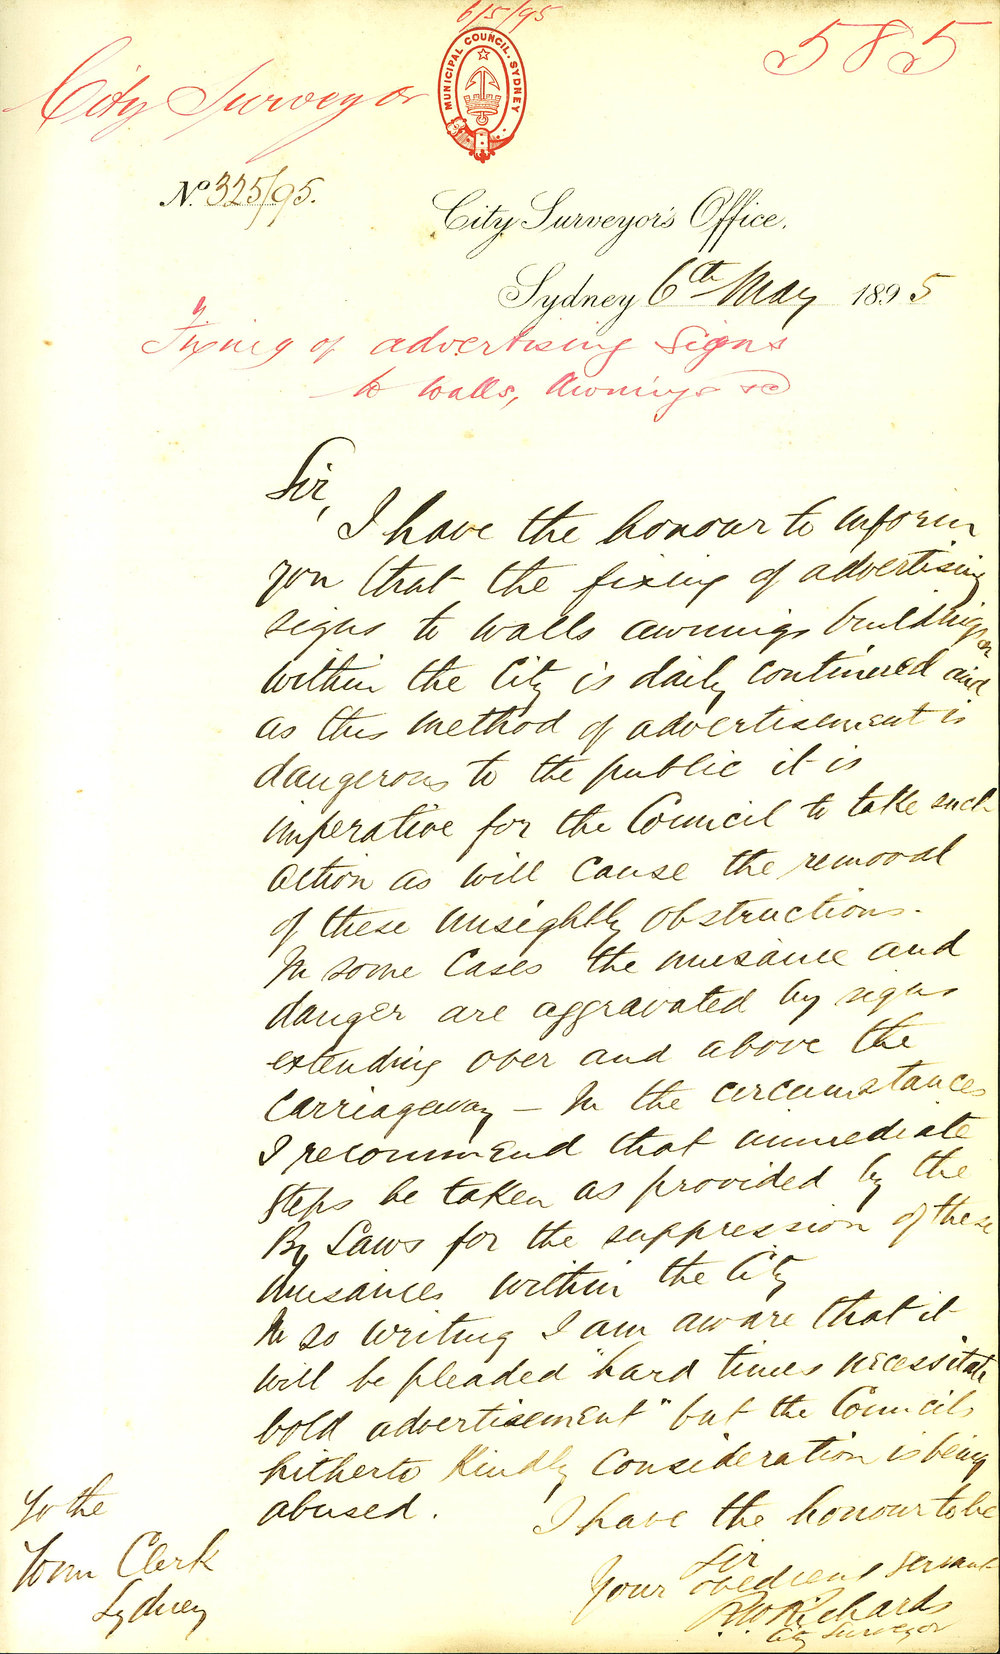 6/5/95
585
City Surveyor
MUNICIPAL COUNCIL. SYDNEY
No. 325/95.
City Surveyor's Office,
Sydney 6th May 1895
Fixing of advertising Signs
to walls, Awnings &c
Sir,
I have the honour to inform
you that the fixing of advertising
signs to walls awnings buildings &c
within the City is daily continued and
as this method of advertisement is
dangerous to the public it is
imperative for the Council to take such
action as will cause the removal
of these unsightly obstructions.
In some cases the nuisance and
danger are aggravated by signs
extending over and above the
carriageway – In the circumstances
I recommend that immediate
steps be taken as provided by the
By Laws for the suppression of these
nuisances within the City
In so writing I am aware that it
will be pleaded "hard times necessitate
bold advertisement" but the Councils
hitherto kindly consideration is being
abused.
I have the honour to be
Sir
Your obedient servant
R W Richards
City Surveyor
To the
Town Clerk
Sydney